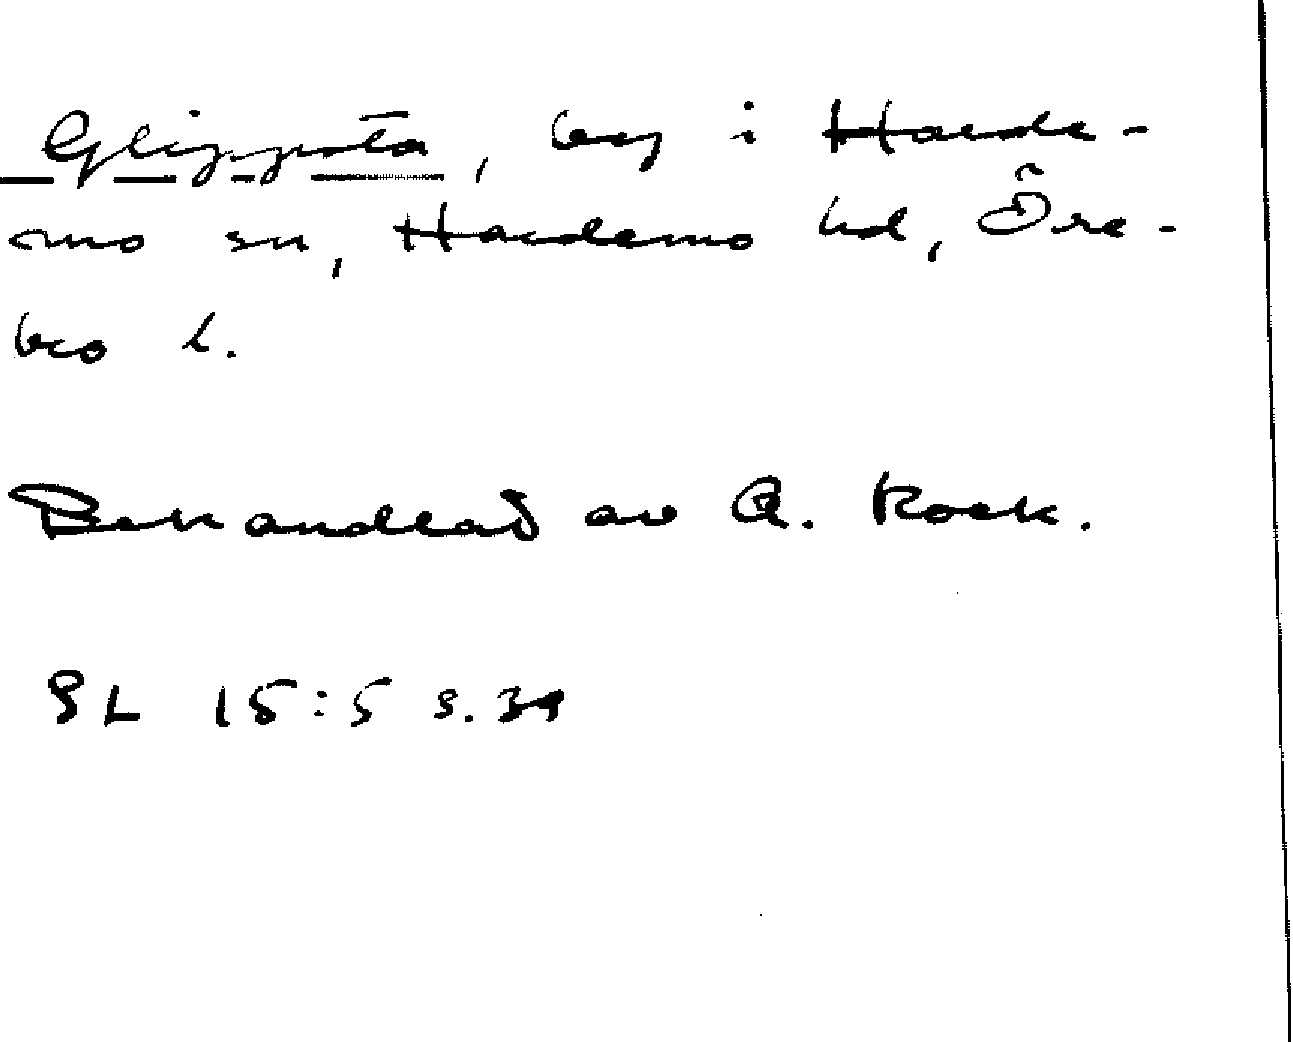 Glippsta, by i Harde-
mo sn, Hardemo hd, Öre-
bro l.
Behandlad av A. Kock.
SL 15:5 s. 39